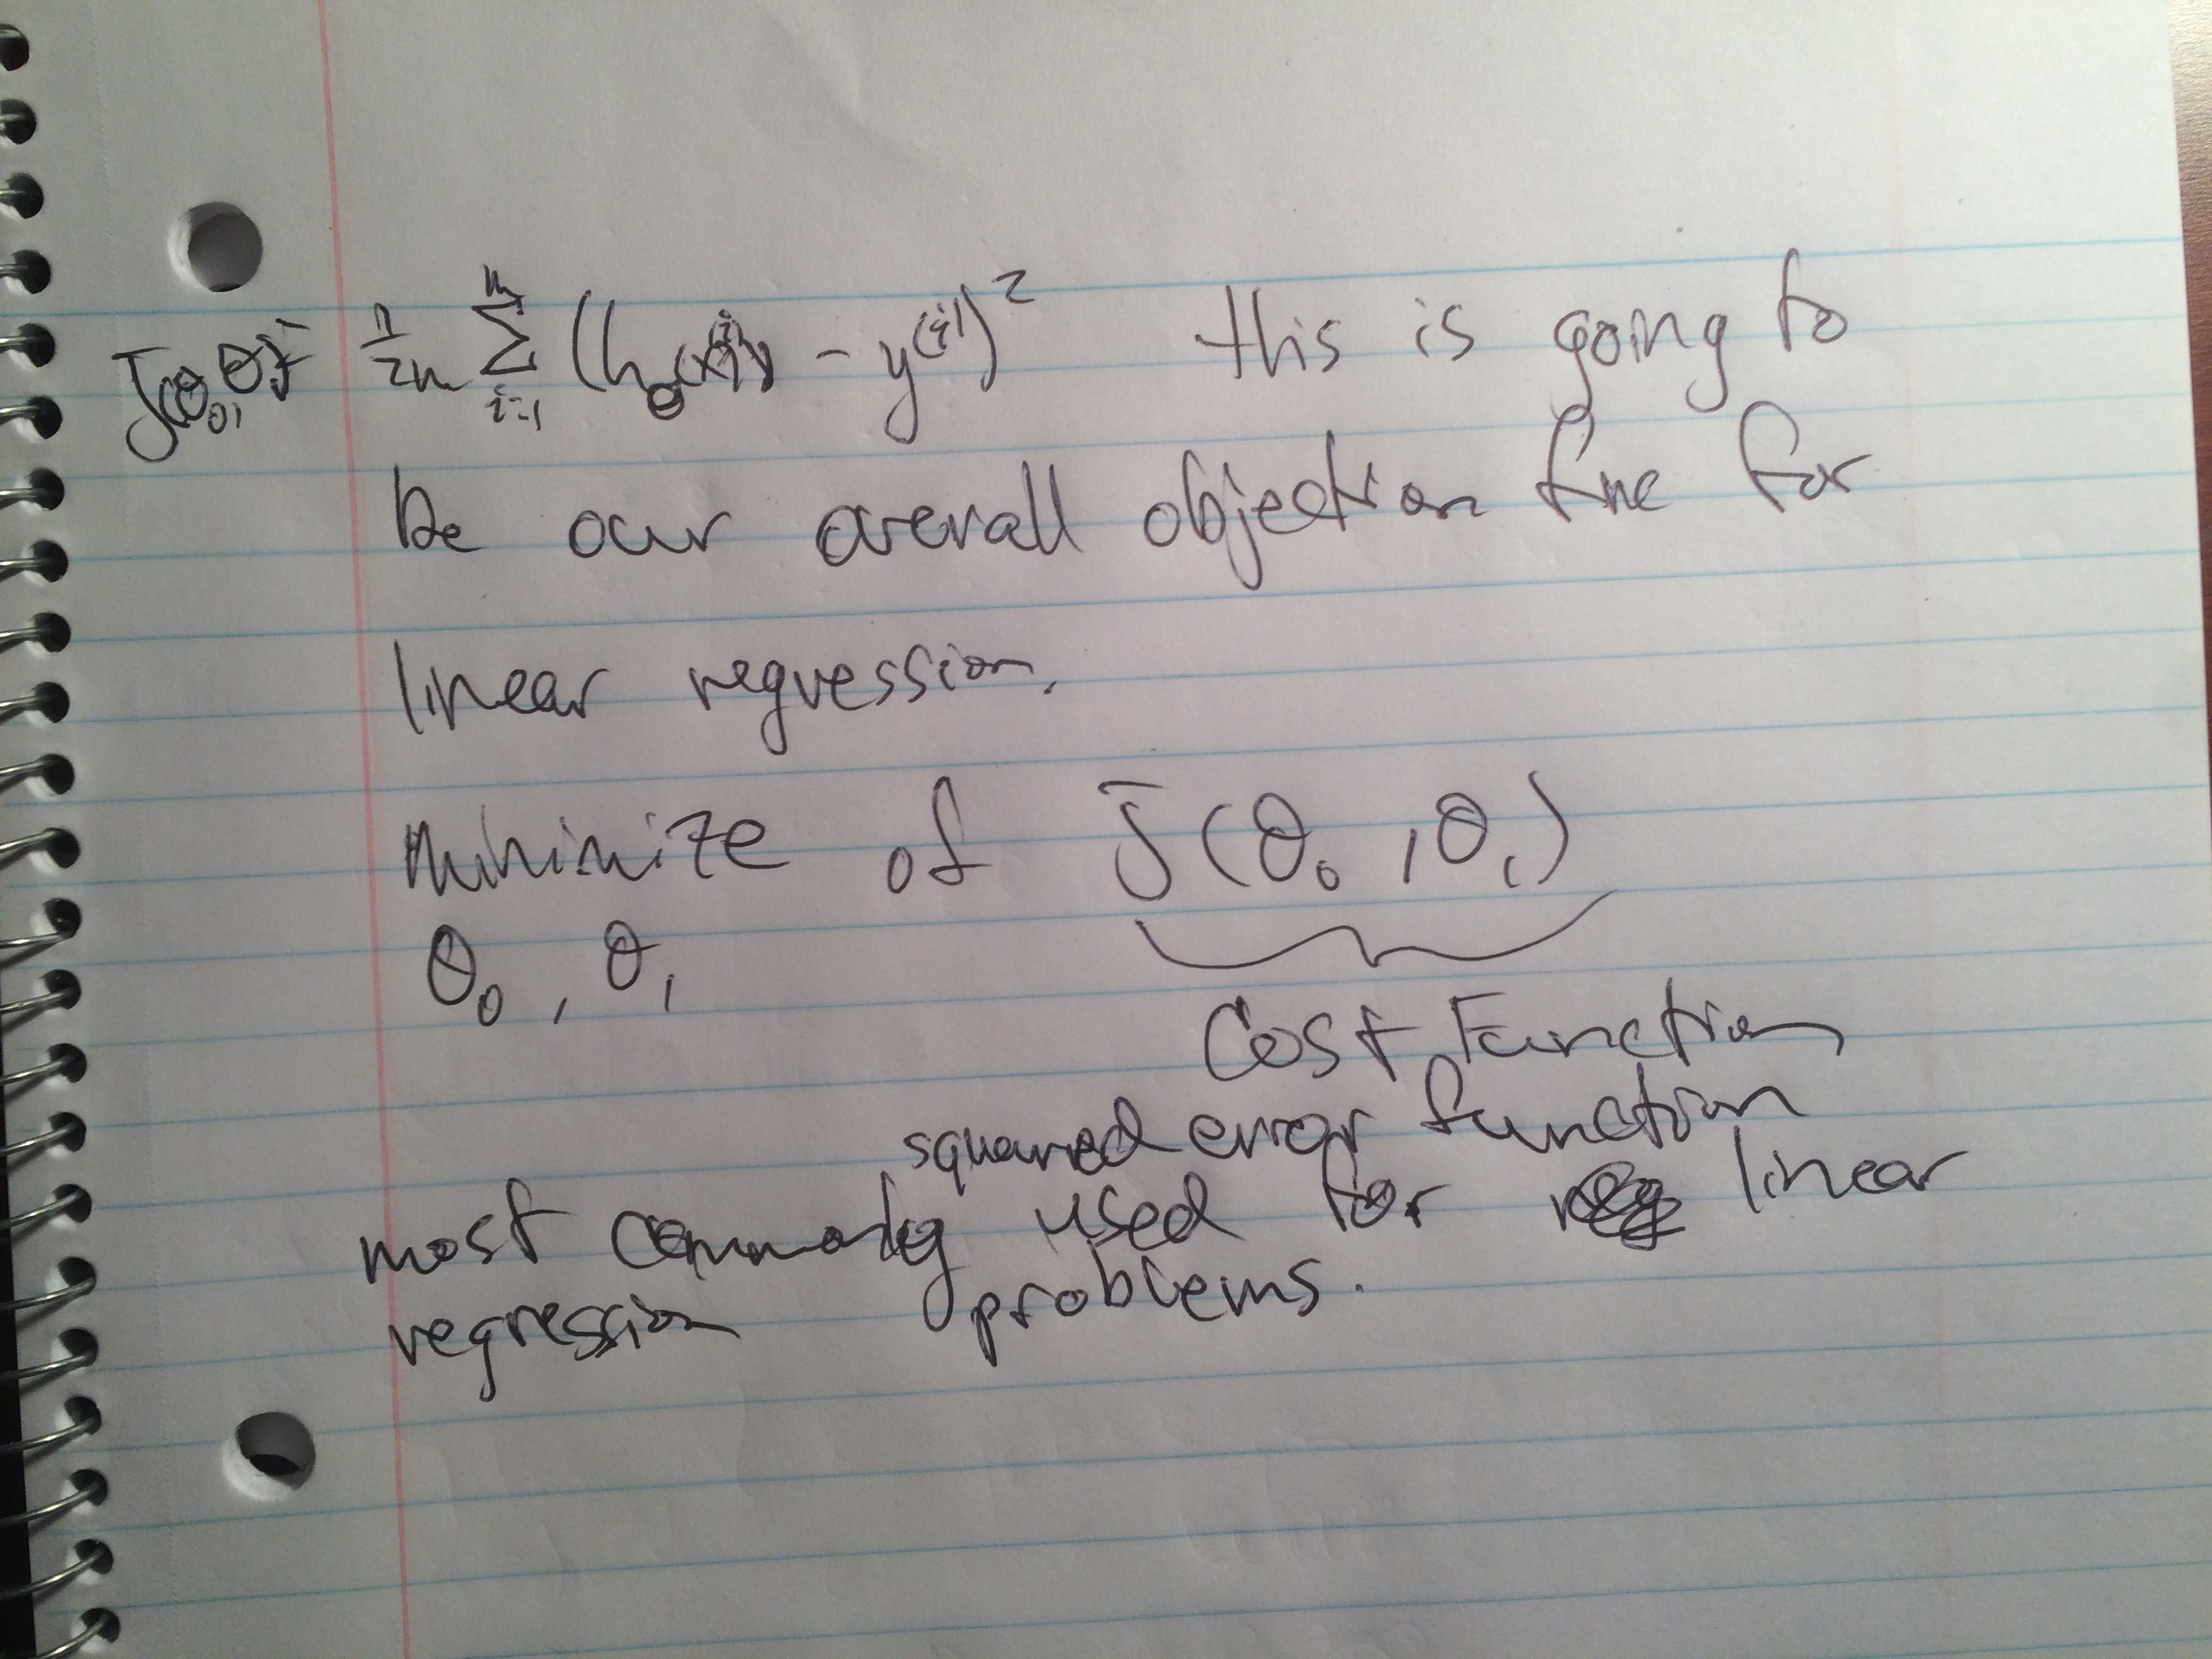 J(θ₀, θ₁) = 1/2m Σ_{i=1}^{m} (h_θ(x^(i)) - y^(i))² this is going to
be our overall objection func for
linear regression.
minimize of J(θ₀, θ₁)
θ₀, θ₁
Cost Function
squared error function
most commonly used for linear
regression problems.